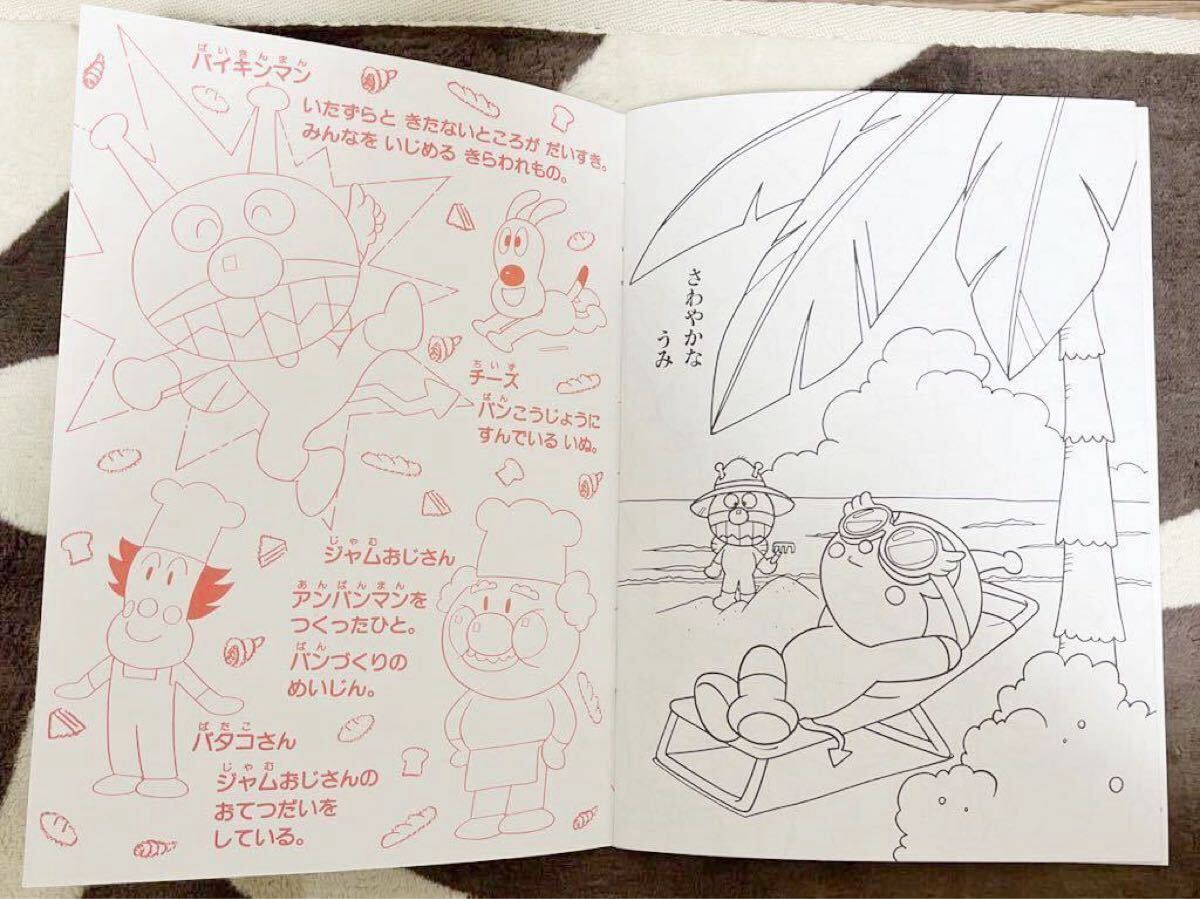 ばいきんまん
バイキンマン
いたずらと きたないところが だいすき。
みんなを いじめる きらわれもの。
ちいず
チーズ
ぱん
パンこうじょうに
すんでいる いぬ。
じゃむ
ジャムおじさん
あんぱんまん
アンパンマンを
つくったひと。
ぱん
パンづくりの
めいじん。
ばたこ
バタコさん
じゃむ
ジャムおじさんの
おてつだいを
している。
さわやかな
うみ